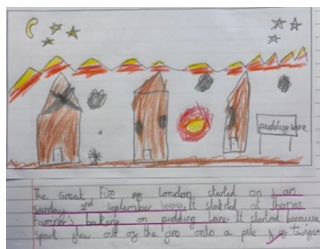 pudding lane
The Great Fire of London started on
Sunday 2nd September It started at thomas
farriner's bakery on pudding lane. It started because
spark flew out of the fire onto a pile of twigs